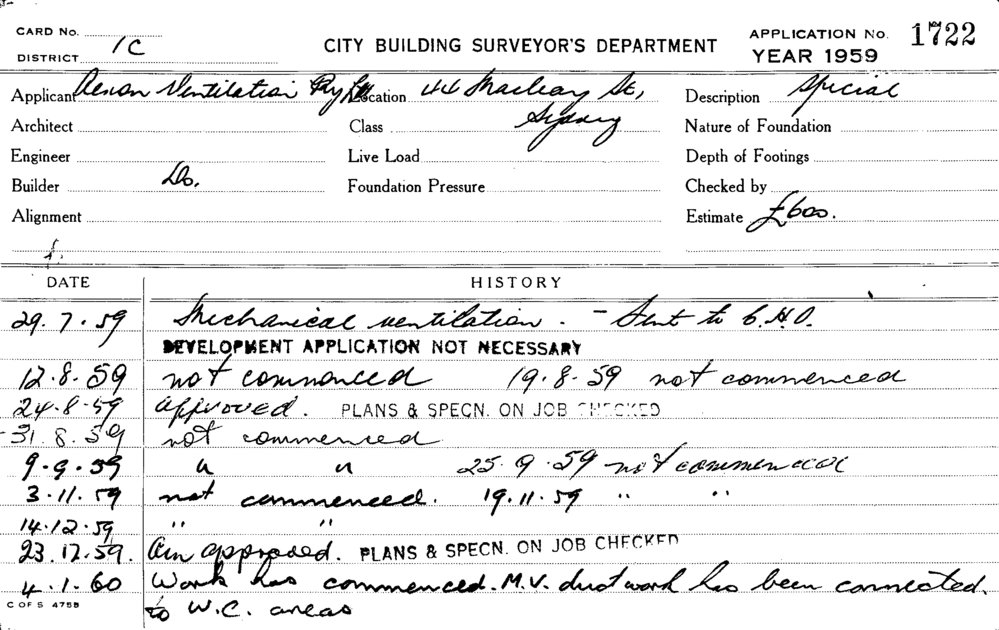 CARD No.
DISTRICT 1C
CITY BUILDING SURVEYOR'S DEPARTMENT
APPLICATION No. 1722
YEAR 1959
Applicant Ventilation Pty Ltd Location 44 Macleay St, Sydney Description Special
Architect Class Nature of Foundation
Engineer Live Load Depth of Footings
Builder Do. Foundation Pressure Checked by
Alignment Estimate £600.
DATE HISTORY
29.7.59 Mechanical ventilation. - Sent to C.H.O.
DEVELOPMENT APPLICATION NOT NECESSARY
12.8.59 not commenced 19.8.59 not commenced
24.8.59 approved. PLANS & SPECN. ON JOB CHECKED
31.8.59 not commenced
9.9.59 " " 25.9.59 not commenced
3.11.59 not commenced. 19.11.59 " "
14.12.59 " "
23.12.59. approved. PLANS & SPECN. ON JOB CHECKED
4.1.60 Work has commenced. M.V. duct work has been connected.
to W.C. areas
C OF S 475B